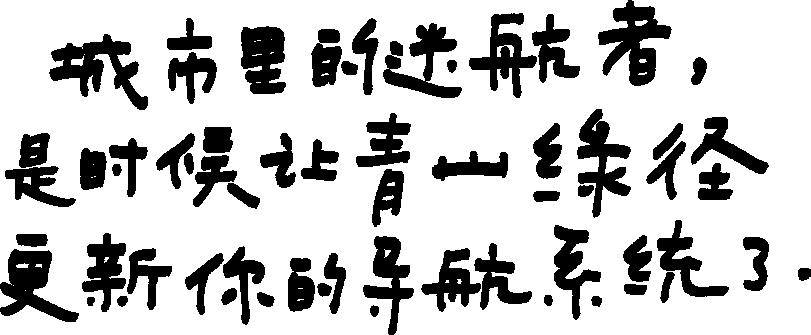 城市里的迷航者，
是时候让青山绿径
更新你的导航系统了.